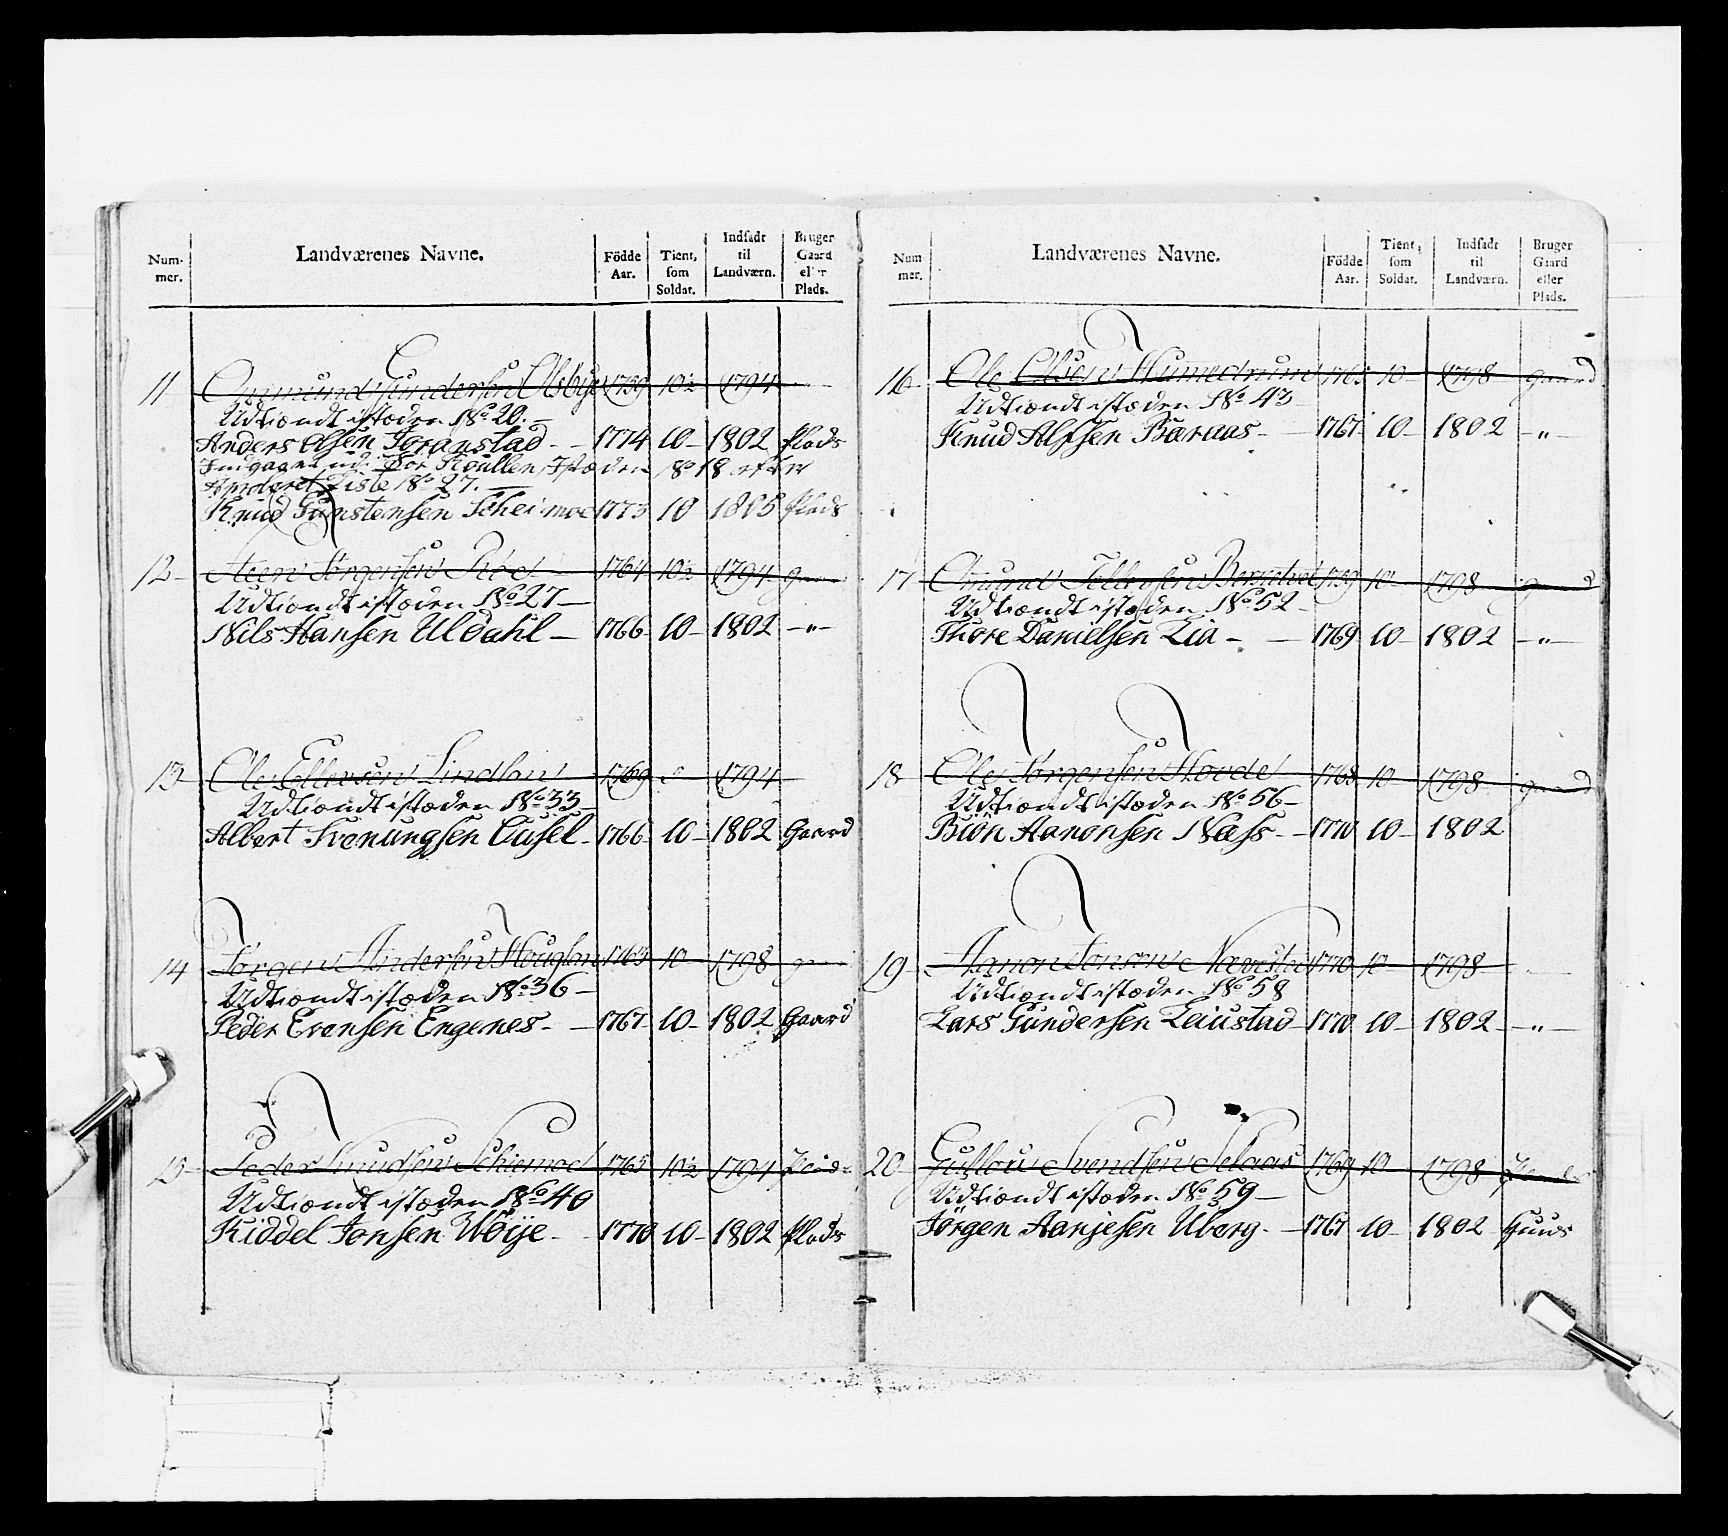 Num-
mer.
Landværenes Navne.
Födde
Aar.
Tient,
som
Soldat.
Indsadt
til
Landværn.
Bruger
Gaard
eller
Plads.
11 Gundersen Olsbye 1759 10½ 1794
Udtiendt istæden No 20.
Anders Olsen Joranstad 1774 10 1802 Plads
istæden No 18 efter
Liste No 27.
Knud Gunstensen Scheimoe 1773 10 1805 Plads
12 Aeen Jörgensen Röed 1764 10½ 1794
Udtiendt istæden No 27
Nils Hansen Uldahl 1766 10 1802 "
13 Ole Ellevsen Lindlan 1769 1794
Udtiendt istæden No 33
Albert Svenungsen Ousel 1766 10 1802 Gaard
14 Jörgen Andersen Houglan 1763 10 1798
Udtiendt istæden No 36
Peder Evensen Engenes 1767 10 1802 Gaard
15 Peder Knudsen Schiemoe 1765 10½ 1794
Udtiendt istæden No 40
Kiddel Jonsen Wöije 1770 10 1802 Plads
Num
mer.
Landværenes Navne.
Födde
Aar.
Tient,
som
Soldat.
Indsadt
til
Landværn.
Bruger
Gaard
eller
Plads.
16 Ole Olsen 1765 10 1798 gaard
Udtiendt istæden No 43
Knud Alfsen Baraas 1767 10 1802 "
17 Tellefsen 1759 10 1798
Udtiendt istæden No 52
Thore Danielsen Lia 1769 10 1802 "
18 Ole Jörgensen Hovde 1768 10 1798 gaard
Udtiendt istæden No 56
Biön Aanonsen Næss 1770 10 1802
19 Aanon Jonsen 1770 10 1798
Udtiendt istæden No 58
Lars Gundersen Leiustad 1770 10 1802 "
20 Gustow Svendsen Selaas 1769 10 1798
Udtiendt istæden No 59
Jörgen Aanjesen Uberg 1767 10 1802 Huus